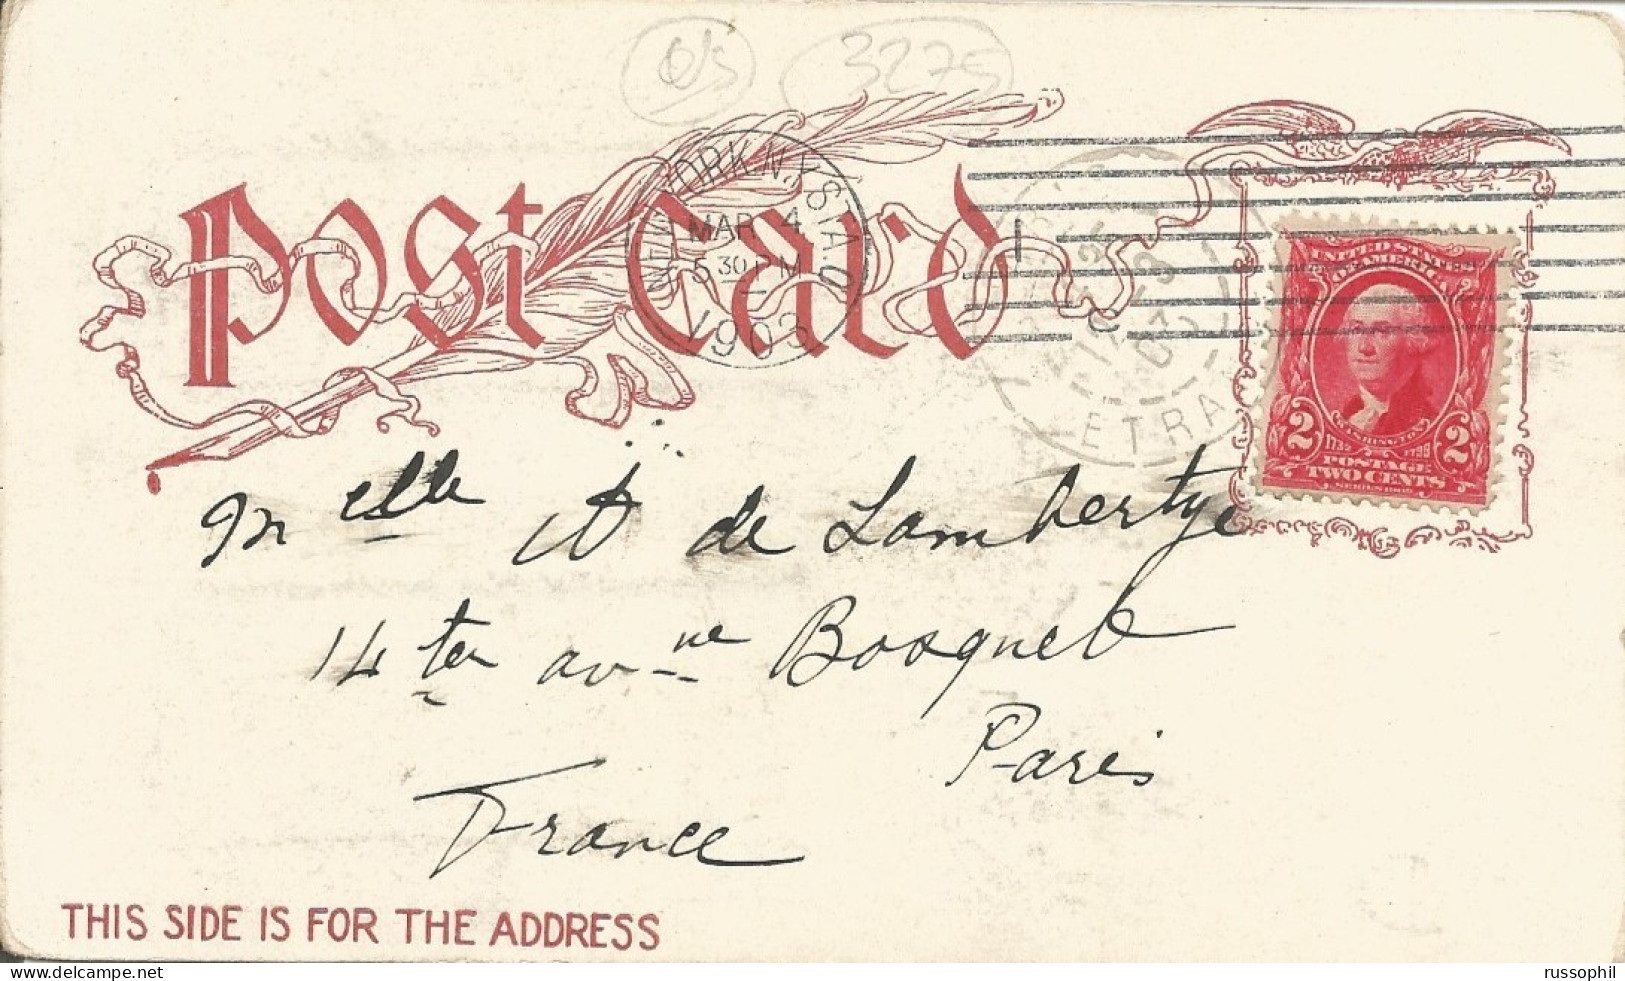 6/5 3275
Post Card
NEW YORK, N.Y. STA. O
MAR 4
5 30 PM
1903
1
ETRA
UNITED STATES
OF AMERICA
2 2
WASHINGTON
1732 1799
POSTAGE
TWO CENTS
SERIES 1902
Melle A de Lambertye
14 ter avnue Bosquet
Paris
France
THIS SIDE IS FOR THE ADDRESS
russophil